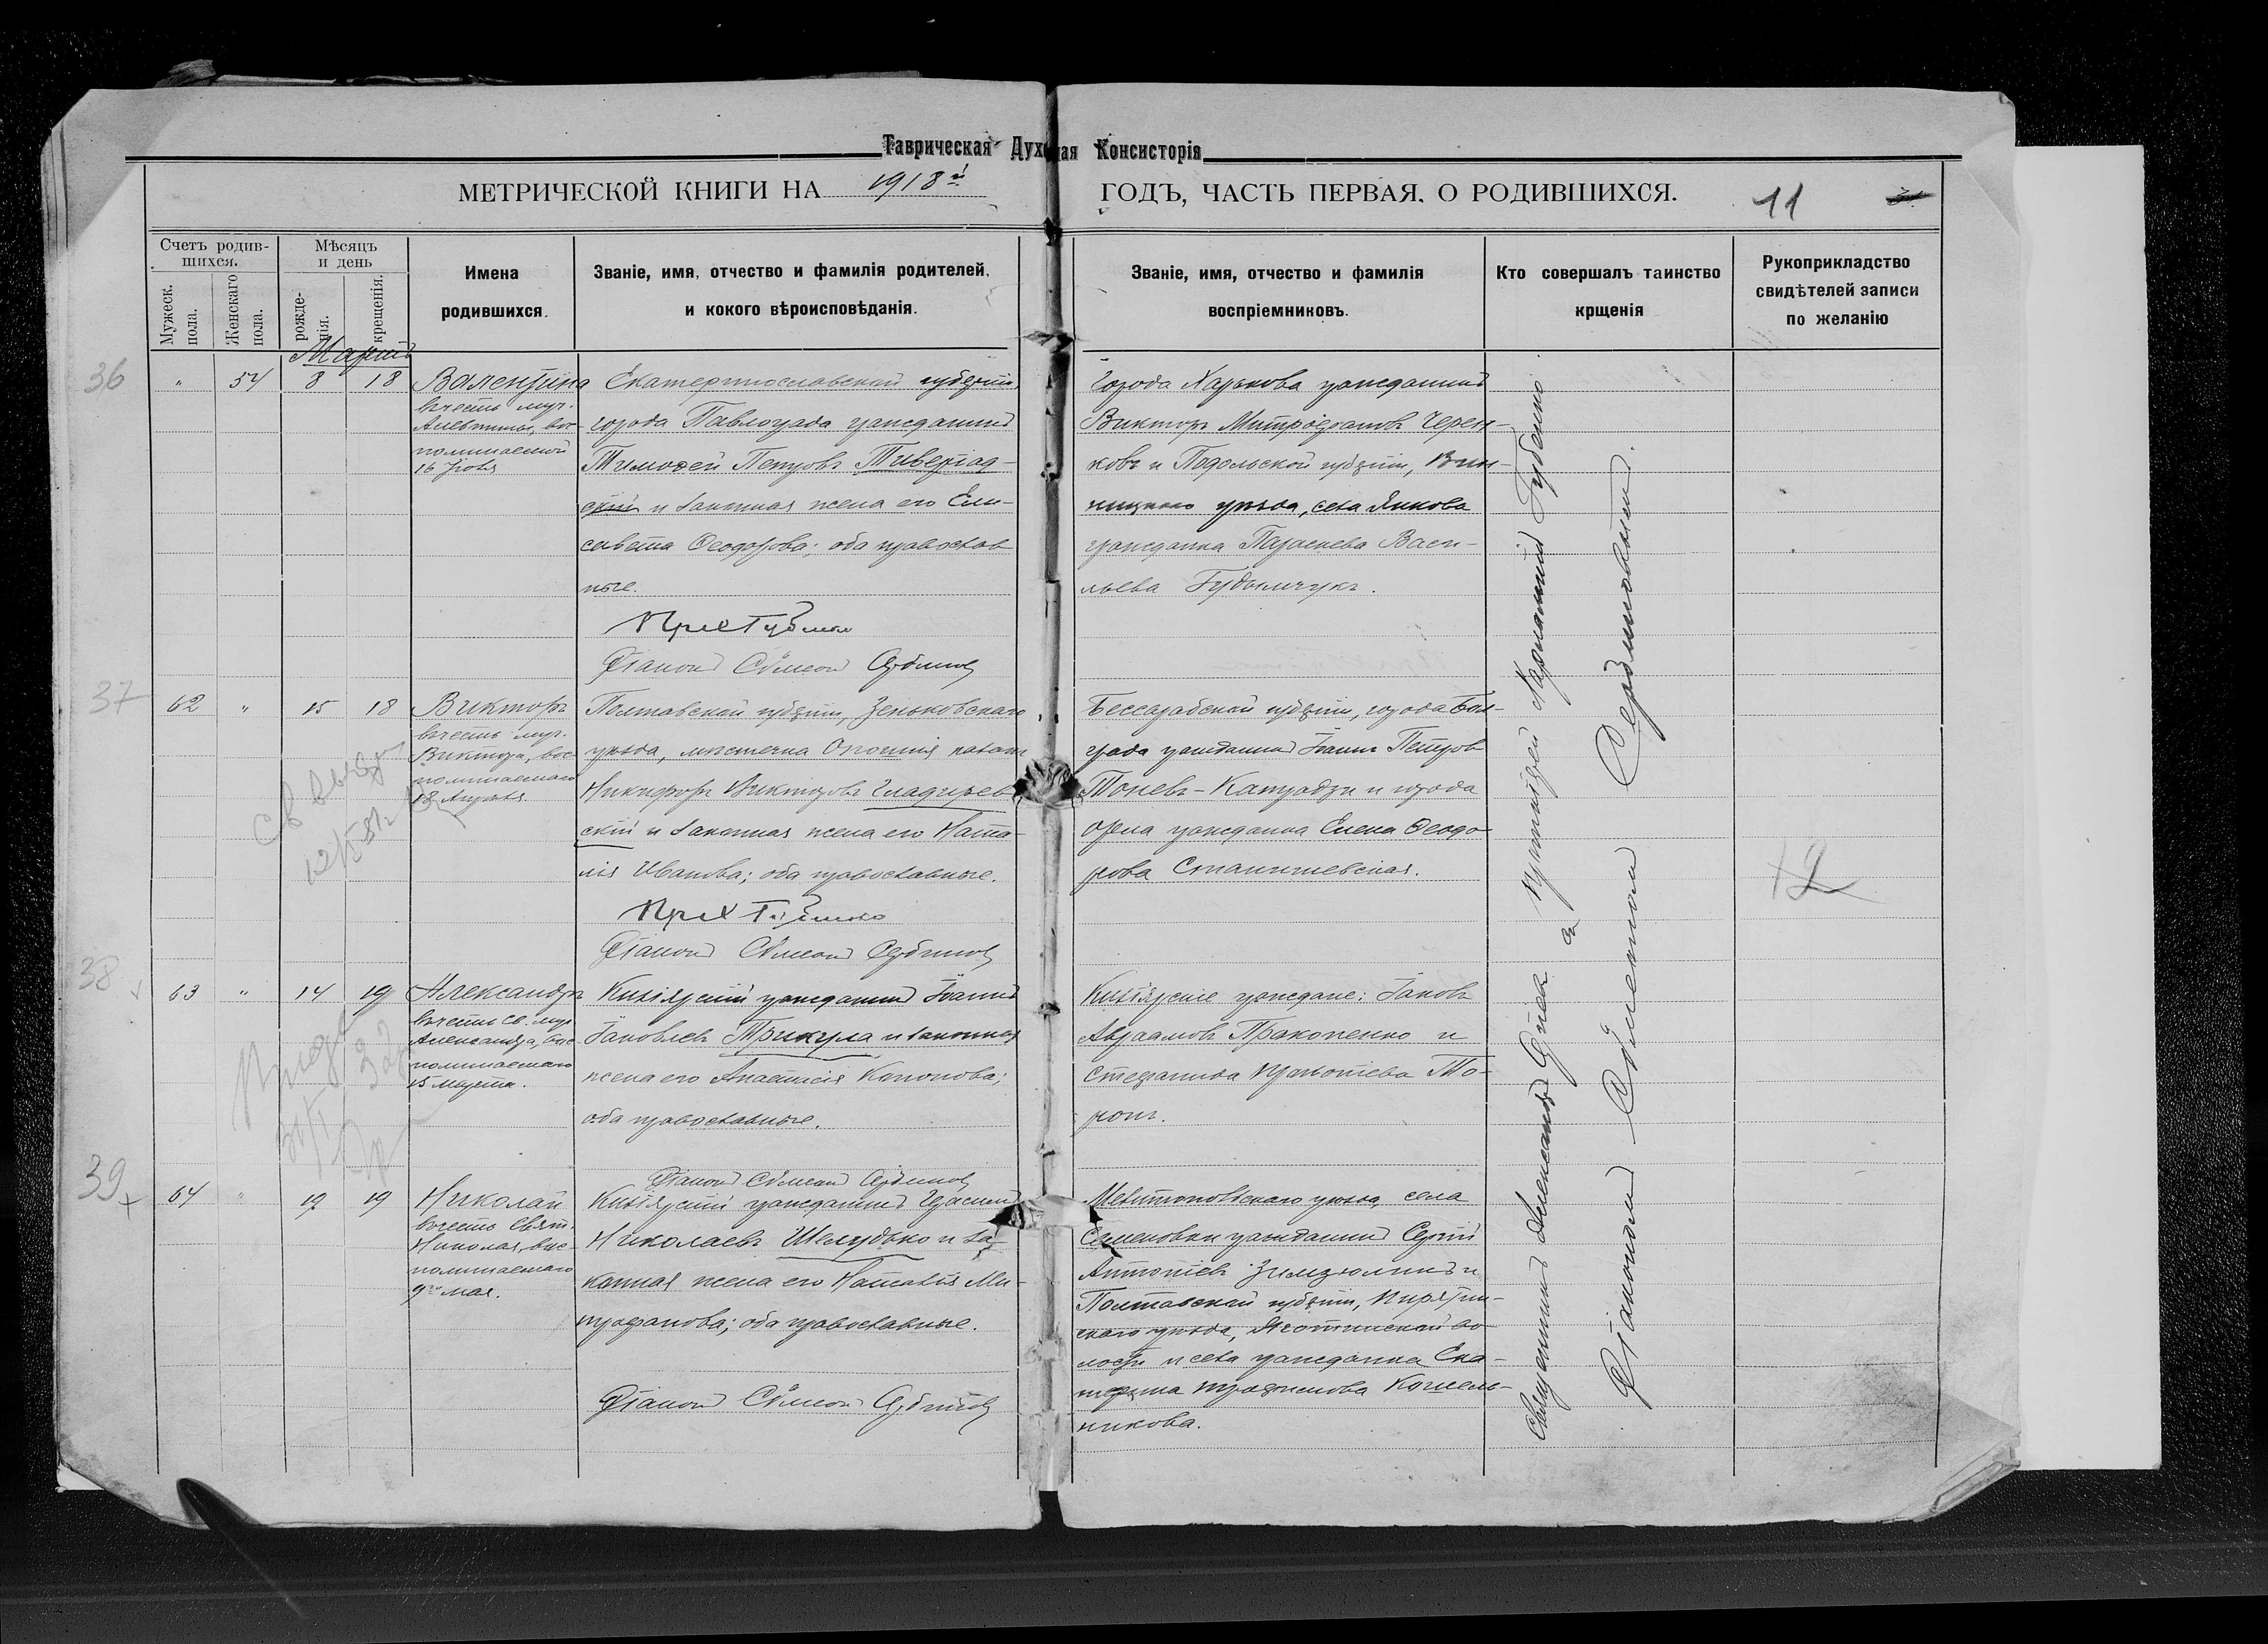 Таврическая Духовная Консисторія
МЕТРИЧЕСКОЙ КНИГИ НА 1918й ГОДЪ, ЧАСТЬ ПЕРВАЯ. О РОДИВШИХСЯ.
11
Счетъ родив-
шихся.
Мужеск.
пола.
Женскаго
пола.
Мѣсяцъ
и день
рожде-
нія.
крещенія.
Имена
родившихся.
Званіе, имя, отчество и фамилія родителей.
и кокого вѣроисповѣданія.
Званіе, имя, отчество и фамилія
воспріемниковъ.
Кто совершалъ таинство
крщенія
Рукоприкладство
свидѣтелей записи
по желанію
Мартъ
36
" 54 8 18
Валентина
въ честь муч.
Алевтины, вос-
поминаемой
16 Іюля
Екатеринославской губерніи,
города Павлограда гражданинъ
Тимоѳей Петровъ Тиверіад-
скій и законная жена его Ели-
савета Ѳеодорова; оба православ
ные.
Діаконъ Сѷмеонъ
города Харькова гражданинъ
Викторъ Митрофановъ Черен-
ковъ и Подольской губерніи, Вин-
ницкаго уѣзда, села Янкова
гражданка Параскева Васи-
льева Гудымчукъ.
37
62 " 15 18
Викторъ
въ честь муч.
Виктора, вос-
поминаемаго
18 Апрѣля.
Полтавской губерніи, Зеньковскаго
уѣзда, мѣстечка Опошня
Никифоръ Викторовъ Гладирев
скій и законная жена его Ната-
лія Иванова; оба православные.
Діаконъ Сѷмеонъ
Бессарабской губерніи, города Бол-
града гражданинъ Іоаннъ Петров
Тонев-Капрадзи и города
Орела гражданка Елена Ѳеодо
рова Станишевская.
12
38
63 " 14 19
Александръ
въ честь св. муч
Александра, вос
поминаемаго
15 марта.
Кизіярскій гражданинъ Іоаннъ
Іаковлевъ Трикула и законная
жена его Анастасія Кононова;
оба православные.
Діаконъ Сѷмеонъ
Кизіярскіе граждане: Іаковъ
Авраамовъ Пракопенко и
Стефанида Прокопіева То-
ронъ.
39
64 " 19 19
Николай
въ честь Свят.
Николая, вос-
поминаемаго
9го мая.
Кизіярскій гражданинъ Герасимъ
Николаевъ Шелудько и за-
конная жена его Наталія Ми-
трофанова; оба православные.
Діаконъ Сѷмеонъ
Мелитопольскаго уѣзда, села
Семеновки гражданинъ Сергій
Антоніевъ Зимзюлинъ и
Полтавской губерніи, Пирятин-
скаго уѣзда, Яготинской во-
лости и села гражданка Ека-
терина Трофимова Кошель-
никова.
Священникъ Александръ
съ Діакономъ Сѷмеономъ